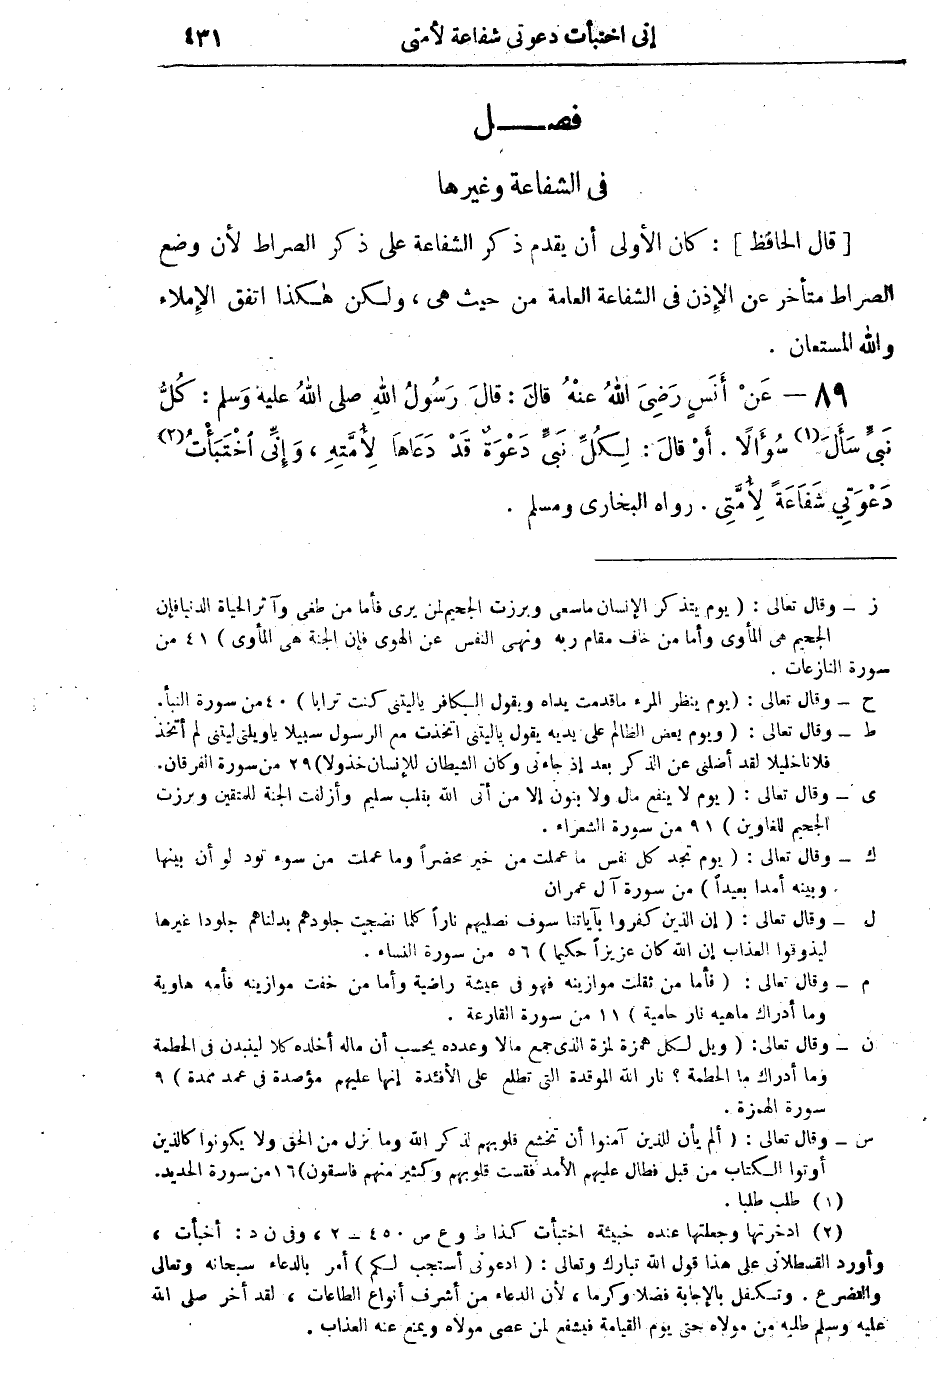 إنى اختبأت دعوتى شفاعة لأمتى ٤٣١
فصــــل
فى الشفاعة وغيرها
[ قال الحافظ ] : كان الأولى أن يقدم ذكر الشفاعة على ذكر الصراط لأن وضع
الصراط متأخر عن الإذن فى الشفاعة العامة من حيث هى ، ولكن هٰكذا اتفق الإملاء
والله المستعان .
٨٩ — عَنْ أَنَسٍ رَضِىَ اللهُ عنْهُ قالَ : قالَ رَسُولُ اللهِ صلى اللهُ عليهِ وَسلم : كُلُّ
نَبِىٍّ سَأَلَ (١) سُؤَالًا . أَوْ قالَ : لِكُلِّ نَبِىٍّ دَعْوَةٌ قَدْ دَعَاهَا لِأُمَّتِهِ ، وَإِنِّى اخْتَبَأْتُ (٢)
دَعْوَتِي شَفَاعَةً لِأُمَّتِى . رواه البخارى ومسلم .
ز — وقال تعالى : ( يوم يتذكر الإنسان ماسعى وبرزت الجحيم لمن يرى فأما من طغى وآثر الحياة الدنيا فإن
الجحيم هى المأوى وأما من خاف مقام ربه ونهى النفس عن الهوى فإن الجنة هى المأوى ) ٤١ من
سورة النازعات .
ح — وقال تعالى : ( يوم ينظر المرء ماقدمت يداه ويقول الكافر ياليتنى كنت ترابا ) ٤٠ من سورة النبأ.
ط — وقال تعالى : ( ويوم يعض الظالم على يديه يقول ياليتنى اتخذت مع الرسول سبيلا ياويلتى ليتنى لم أتخذ
فلانا خليلا لقد أضلنى عن الذكر بعد إذ جاءنى وكان الشيطان للإنسان خذولا) ٢٩ من سورة الفرقان.
ى — وقال تعالى : ( يوم لا ينفع مال ولا بنون إلا من أتى الله بقلب سليم وأزلفت الجنة للمتقين وبرزت
الجحيم للغاوين ) ٩١ من سورة الشعراء .
ك — وقال تعالى : ( يوم تجد كل نفس ما عملت من خير محضراً وما عملت من سوء تود لو أن بينها
وبينه أمدا بعيداً ) من سورة آل عمران
ل — وقال تعالى : ( إن الذين كفروا بآياتنا سوف نصليهم ناراً كلما نضجت جلودهم بدلناهم جلودا غيرها
ليذوقوا العذاب إن الله كان عزيزاً حكيما ) ٥٦ من سورة النساء .
م — وقال تعالى : ( فأما من ثقلت موازينه فهو فى عيشة راضية وأما من خفت موازينه فأمه هاوية
وما أدراك ماهيه نار حامية ) ١١ من سورة القارعة .
ن — وقال تعالى: ( ويل لكل همزة لمزة الذى جمع مالا وعدده يحسب أن ماله أخلده كلا لينبذن فى الحطمة
وما أدراك ما الحطمة ؟ نار الله الموقدة التى تطلع على الأفئدة إنها عليهم مؤصدة فى عمد ممدة ) ٩
سورة الهمزة .
س — وقال تعالى : ( ألم يأن للذين آمنوا أن تخشع قلوبهم لذكر الله وما نزل من الحق ولا يكونوا كالذين
أوتوا الكتاب من قبل فطال عليهم الأمد فقست قلوبهم وكثير منهم فاسقون) ١٦ من سورة الحديد.
(١) طلب طلبا .
(٢) ادخرتها وجعلتها عنده خبيئة اختبأت كذا ط و ع ص ٤٥٠ — ٢ ، وفى ن د : أخبأت ،
وأورد القسطلانى على هذا قول الله تبارك وتعالى : ( ادعونى أستجب لكم ) أمر بالدعاء سبحانه وتعالى
والتضرع . وتكفل بالإجابة فضلا وكرما ، لأن الدعاء من أشرف أنواع الطاعات ، لقد أخر صلى الله
عليه وسلم طلبه من مولاه حتى يوم القيامة فيشفع لمن عصى مولاه ويمنع عنه العذاب .